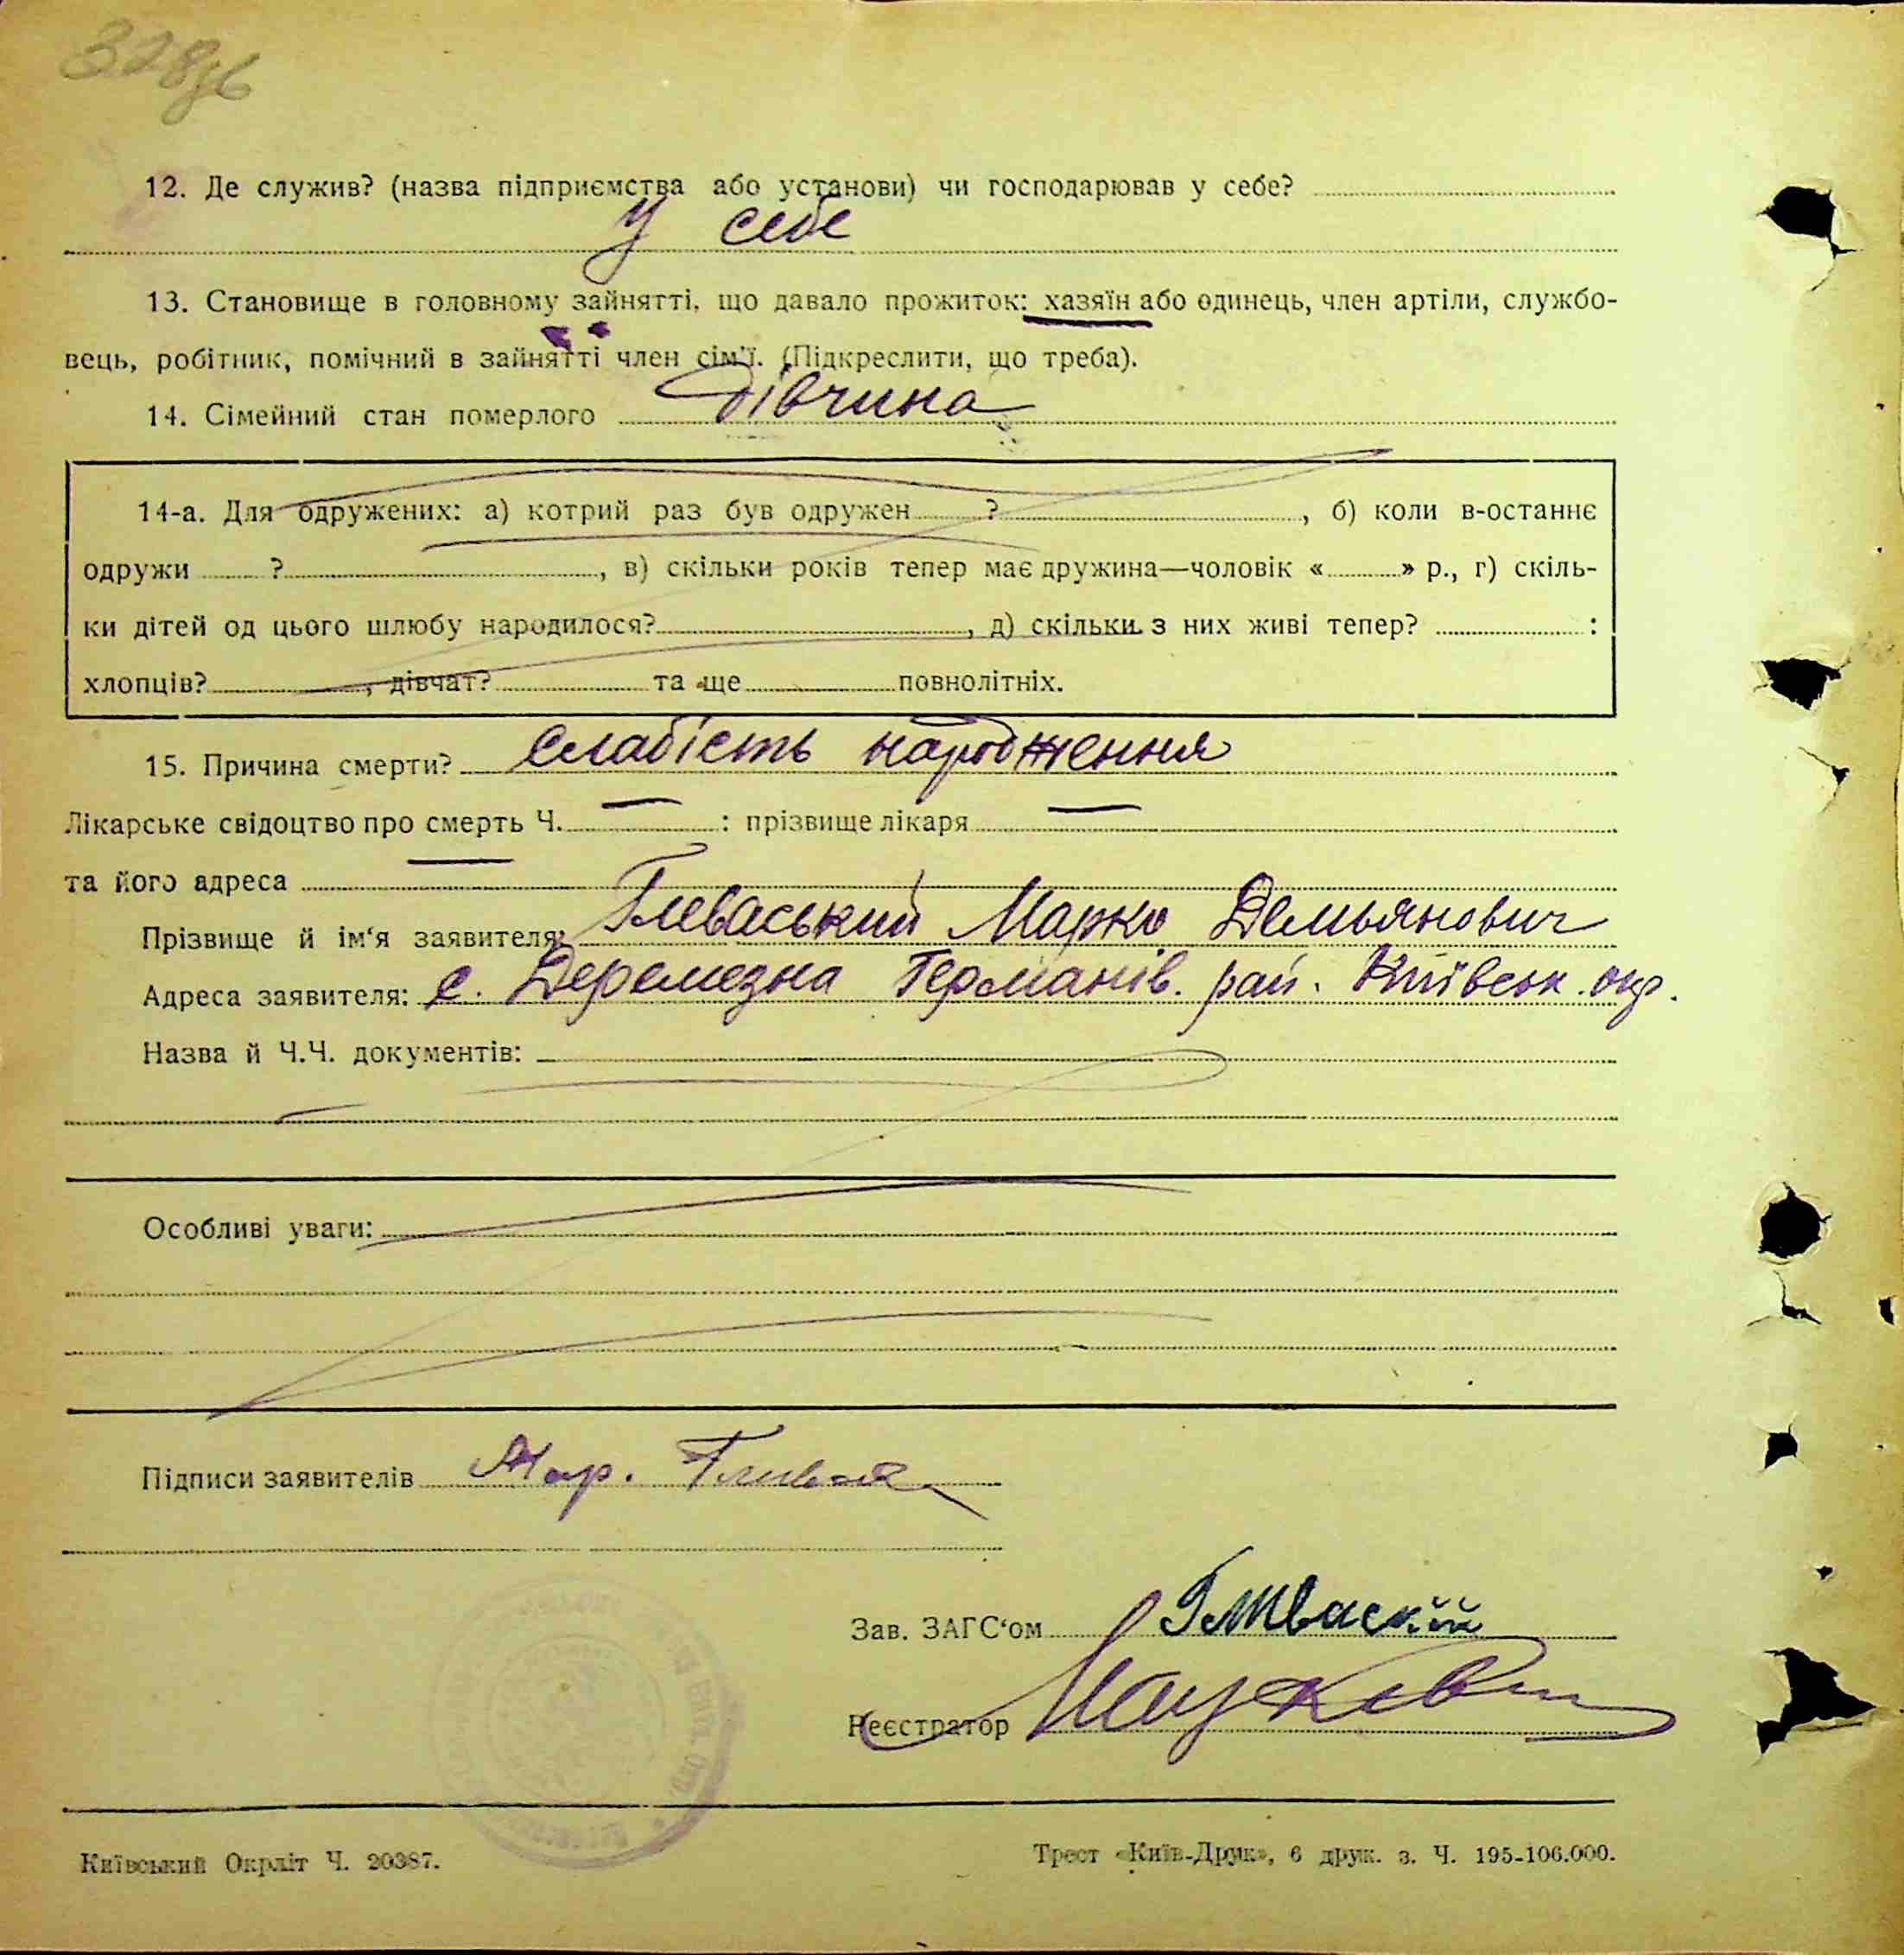 328зв
12. Де служив? (назва підприємства або установи) чи господарював у себе?
у себе
13. Становище в головному зайнятті, що давало прожиток: хазяїн або одинець, член артіли, службо-
вець, робітник, помічний в зайнятті член сім'ї. (Підкреслити, що треба).
14. Сімейний стан померлого дівчина
14-а. Для одружених: а) котрий раз був одружен ? , б) коли в-останнє
одружи ? , в) скільки років тепер має дружина—чоловік « » р., г) скіль-
ки дітей од цього шлюбу народилося? , д) скільки з них живі тепер? :
хлопців? , дівчат? та ще повнолітніх.
15. Причина смерти? слабість народження
Лікарське свідоцтво про смерть Ч. — : прізвище лікаря —
та його адреса —
Прізвище й ім'я заявителя: Глеваський Марко Демьянович
Адреса заявителя: с. Деремезна Германів. рай. Київськ. окр.
Назва й Ч.Ч. документів:
Особливі уваги:
Підписи заявителів Мар. Глевас
Зав. ЗАГС'ом Гливаский
Реєстратор
Київський Окрліт Ч. 20387.
Трест «Київ-Друк», 6 друк. з. Ч. 195-106.000.